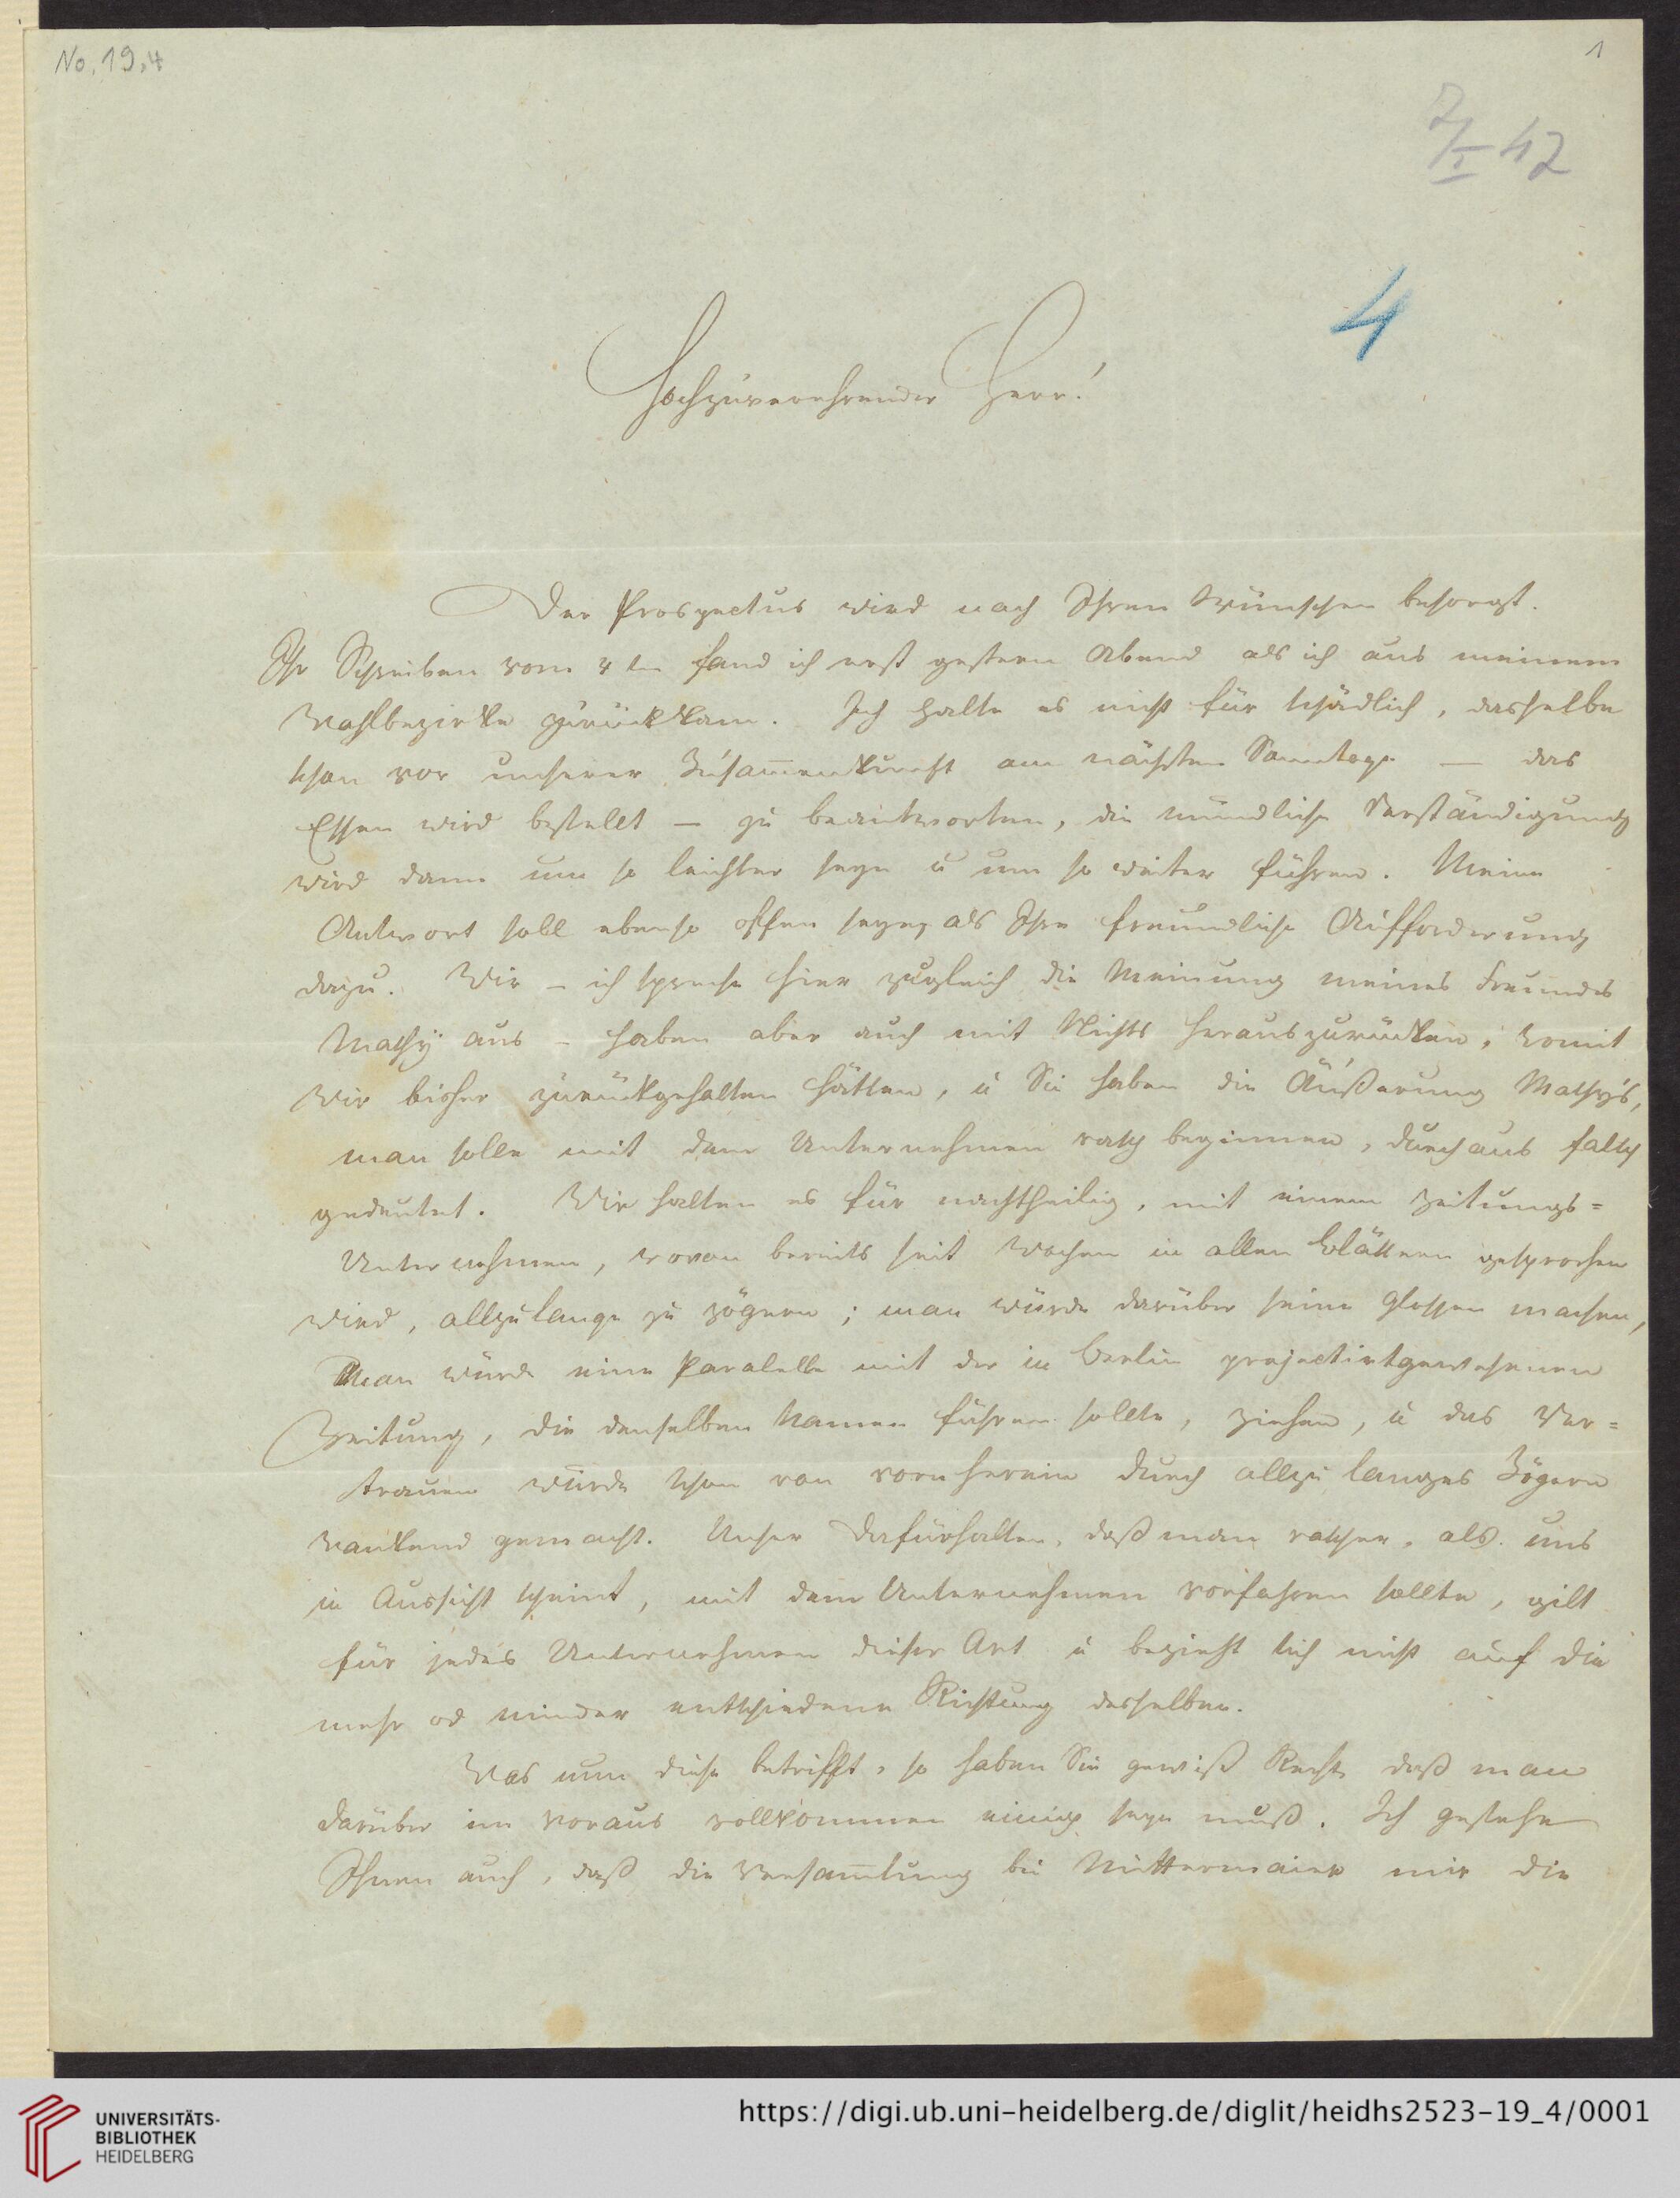 No. 19,4
1
7/I 47
4
Hochzuverehrender Herr!
Der Prospectus wird nach Ihren Wünschen besorgt.
Ihr Schreiben vom 4ten fand ich erst gestern Abend als ich aus meinem
Wahlbezirke zurückkam. Ich halte es nicht für schädlich, dasselbe
schon vor unserer Zusam̅enkunft am nächsten Sonntage — das
Essen wird bestellt — zu beantworten, die mündliche Verständigung
wird dann um so leichter seyn u um so weiter führen. Meine
Antwort soll ebenso offen seyn, als Ihre freundliche Aufforderung
dazu. Wir – ich spreche hier zugleich die Meinung meines Freundes
Mathy aus – haben aber auch mit Nichts herauszurücken, womit
wir bisher zurückgehalten hätten, u Sie haben die Äußerung Mathy's,
man solle mit dem Unternehmen rasch beginnen, durchaus falsch
gedeutet. Wir halten es für nachtheilig, mit einem Zeitungs=
Unternehmen, wovon bereits seit Wochen in allen Blättern gesprochen
wird, allzulange zu zögern; man würde darüber seine Glossen machen,
Man würde eine Paralelle mit der in Berlin projectirtgewesenen
Zeitung, die denselben Namen führen sollte, ziehen, u das Ver=
trauen würde schon von vorn herein durch allzu langes Zögern
wankend gemacht. Unser Dafürhalten, daß man rascher, als uns
in Aussicht scheint, mit dem Unternehmen vorfahren sollte, gilt
für jedes Unternehmen dieser Art u bezieht sich nicht auf die
mehr od minder entschiedene Richtung desselben.
Was nun diese betrifft, so haben Sie gewiß Recht, daß man
darüber im Voraus vollkommen einig seyn muß. Ich gestehe
Ihnen auch, daß die Versam̅lung bei Mittermaier mir die
UNIVERSITÄTS-
BIBLIOTHEK
HEIDELBERG
https://digi.ub.uni-heidelberg.de/diglit/heidhs2523-19_4/0001